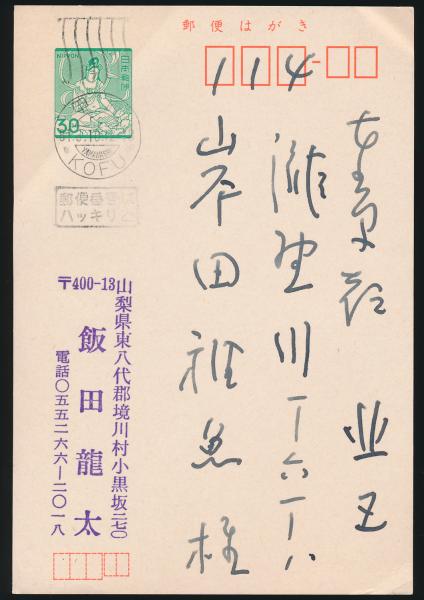 郵便はがき
114
東京都北区
滝野川一ー六一ー八
岸田稚魚様
NIPPON
日本郵便
30
KOFU
郵便番号は
ハッキリと
〒400-13
山梨県東八代郡境川村小黒坂二七〇
飯田龍太
電話〇五五二六六ー二〇一八